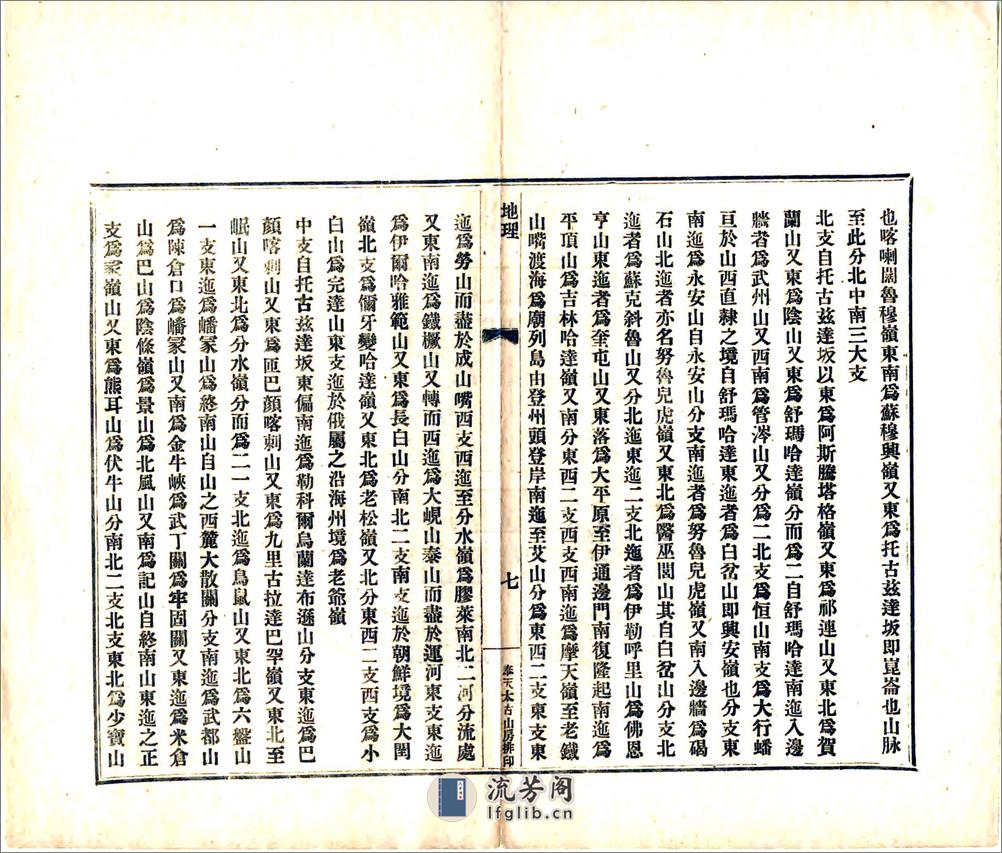 也喀喇闊魯穆嶺東南爲蘇穆興嶺又東爲托古茲達坂即崑崙也山脉
至此分北中南三大支
北支自托古茲達坂以東爲阿斯騰塔格嶺又東爲祁連山又東北爲賀
蘭山又東爲陰山又東爲舒瑪哈達嶺分而爲二自舒瑪哈達南迤入邊
牆者爲武州山又西南爲管涔山又分爲二北支爲恒山南支爲大行蟠
亘於山西直隸之境自舒瑪哈達東迤者爲白岔山即興安嶺也分支東
南迤爲永安山自永安山分支南迤者爲努魯兒虎嶺又南入邊牆爲碣
石山北迤者亦名努魯兒虎嶺又東北爲醫巫閭山其自白岔山分支北
迤者爲蘇克斜魯山又分北迤東迤二支北迤者爲伊勒呼里山爲佛恩
亨山東迤者爲奎屯山又東落爲大平原至伊通邊門南復隆起南迤爲
平頂山爲吉林哈達嶺又南分東西二支西支西南迤爲摩天嶺至老鐵
山嘴渡海爲廟列島由登州頭登岸南迤至艾山分爲東西二支東支東
地理
七
奉天太古山房排印
迤爲勞山而盡於成山嘴西支西迤至分水嶺爲膠萊南北二河分流處
又東南迤爲鐵橛山又轉而西迤爲大峴山泰山而盡於運河東支東迤
爲伊爾哈雅範山又東爲長白山分南北二支南支迤於朝鮮境爲大閏
嶺北支爲儞牙變哈達嶺又東北爲老松嶺又北分東西二支西支爲小
白山爲完達山東支迤於俄屬之沿海州境爲老爺嶺
中支自托古茲達坂東偏南迤爲勒科爾烏蘭達布遜山分支東迤爲巴
顏喀剌山又東爲匝巴顏喀刺山又東爲九里古拉達巴罕嶺又東北至
岷山又東北爲分水嶺分而爲二一支北迤爲鳥鼠山又東北爲六盤山
一支東迤爲嶓冢山爲終南山自山之西麓大散關分支南迤爲武都山
爲陳倉口爲嶓冢山又南爲金牛峽爲武丁關爲牢固關又東迤爲米倉
山爲巴山爲陰條嶺爲景山爲北風山又南爲記山自終南山東迤之正
支爲冢嶺山又東爲熊耳山爲伏牛山分南北二支北支東北爲少寶山
流芳阁
lfglib.cn